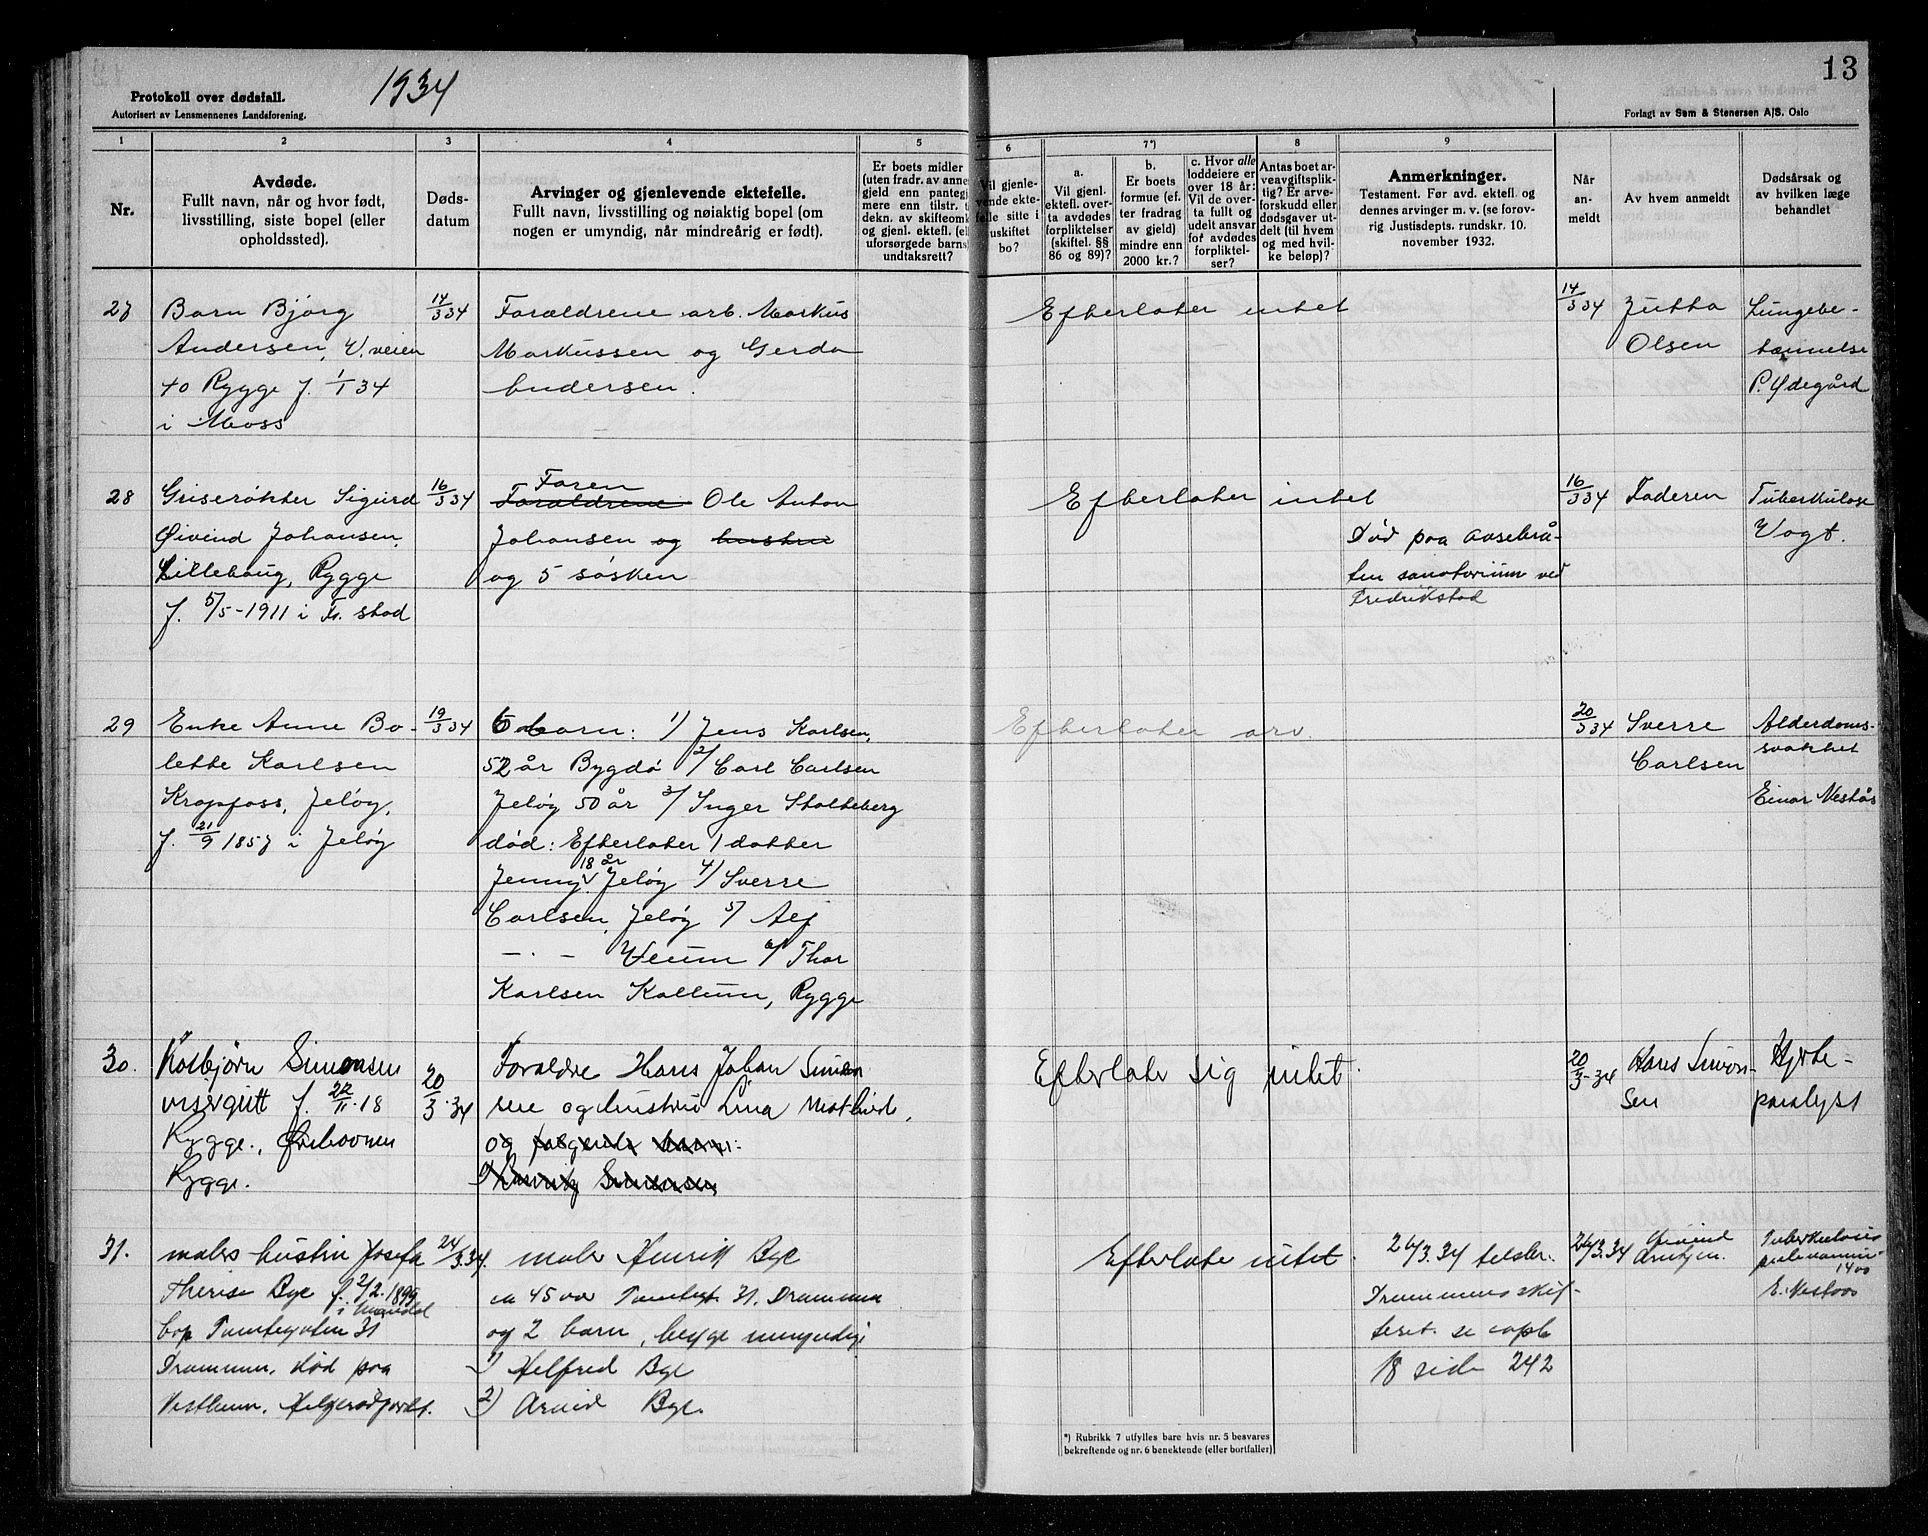 1934
13
Protokoll over dødsfall.
Autorisert av Lensmennenes Landsforening.
Forlagt av Sem & Stenersen A/S. Oslo
1 2 3 4 5 6 7*) 8 9
Nr.
Avdøde.
Fullt navn, når og hvor født,
livsstilling, siste bopel (eller
opholdssted).
Døds-
datum
Arvinger og gjenlevende ektefelle.
Fullt navn, livsstilling og nøiaktig bopel (om
nogen er umyndig, når mindreårig er født).
Er boets midler
(uten fradr. av annen
gjeld enn pantegj
mere enn tilstr. t
dekn. av skifteomk
og gjenl. ektef. (el
uforsørgede barns)
undtaksrett?
Vil gjenle-
vende ekte-
felle sitte i
uskiftet
bo?
a.
Vil gjenl.
ektef. over-
ta avdødes
forpliktelser
(skiftel. §§
86 og 89)?
b.
Er boets
formue (ef-
ter fradrag
av gjeld)
mindre enn
2000 kr.?
c. Hvor alle
loddeiere er
over 18 år:
Vil de over-
ta fullt og
udelt ansvar
for avdødes
forpliktel-
ser?
Antas boet ar-
veavgiftsplik-
tig? Er arve-
forskudd eller
dødsgaver ut-
delt (til hvem
og med hvil-
ke beløp)?
Anmerkninger.
Testament. Før avd. ektefl. og
dennes arvinger m. v. (se forøv-
rig Justisdepts. rundskr. 10.
november 1932.
Når
an-
meldt
Av hvem anmeldt
Dødsårsak og
av hvilken læge
behandlet
27 Barn Bjørg 14/3 34 Forældrene arb. Markus Efterlater intet 14/3 34 Jutta Lungebe-
Andersen, V. veien Markussen og Gerda Olsen tennelse
40 Rygge f. 1/1 34 Andersen. P. Ødegård
i Moss
28 Griserøkter Sigurd 16/3 34 Faren Forældrene Ole Anton Efterlater intet 16/3 34 Faderen Tuberkulose
Øivind Johansen, Johansen og hustru Død paa Anseibrå- Vogt.
Lillehaug, Rygge og 5 søsken ten sanatorium ved
f. 5/5-1911 i Fr. stad Fredrikstad
29 Enke Anne Bo- 19/3 34 6 barn: 1/ Jens Karlsen, Efterlater arv. 20/3 34 Sverre Alderdoms-
lette Karlsen 52 år Bygdø 2/ Carl Carlsen Carlsen svakhet
Kropfoss, Jeløy, Jeløy 50 år 3/ Inger Stolteberg Einar Nestås
f. 21/9 1857 i Jeløy død: Efterlater 1 datter
Jenny 18 år Jeløy 4/ Sverre
Carlsen, Jeløy 5/ Alf
— . — Veum 6/ Thor
Karlsen Kallum, Rygge
30. Kolbjørn Simonsen 20/3 34 Foreldre Hans Johan Simon Efterlate sig intet. 20/3-34 Hans Simon- Hjerte-
visergutt f. 22/11-18 sen og hustru Lina Mathilde, sen paralyse
Rygge., Rygge. og følgende barn:
Simonsen
31. malers hustru Josefa 24/3.34. maler Henrik Bye Efterlate intet. 24/3.34 telsbr. 24/3.34 Øivind Tuberkulosis
Therese Bye f. 2/2.1899 ca 45 aar Tomtegt 31. Drammen Drammens skif- Arntzen. pulmonum
i Mandal
bop Tomtegaten 31 og 2 barn, begge umyndige teret. se copb E. Nestaas
Drammen. død paa 1) Helfred Bye 18 side 242
Vestheim, Helgerødgodset. 2) Arvid Bye.
*) Rubrikk 7 utfylles bare hvis nr. 5 besvares
bekreftende og nr. 6 benektende (eller bortfaller)